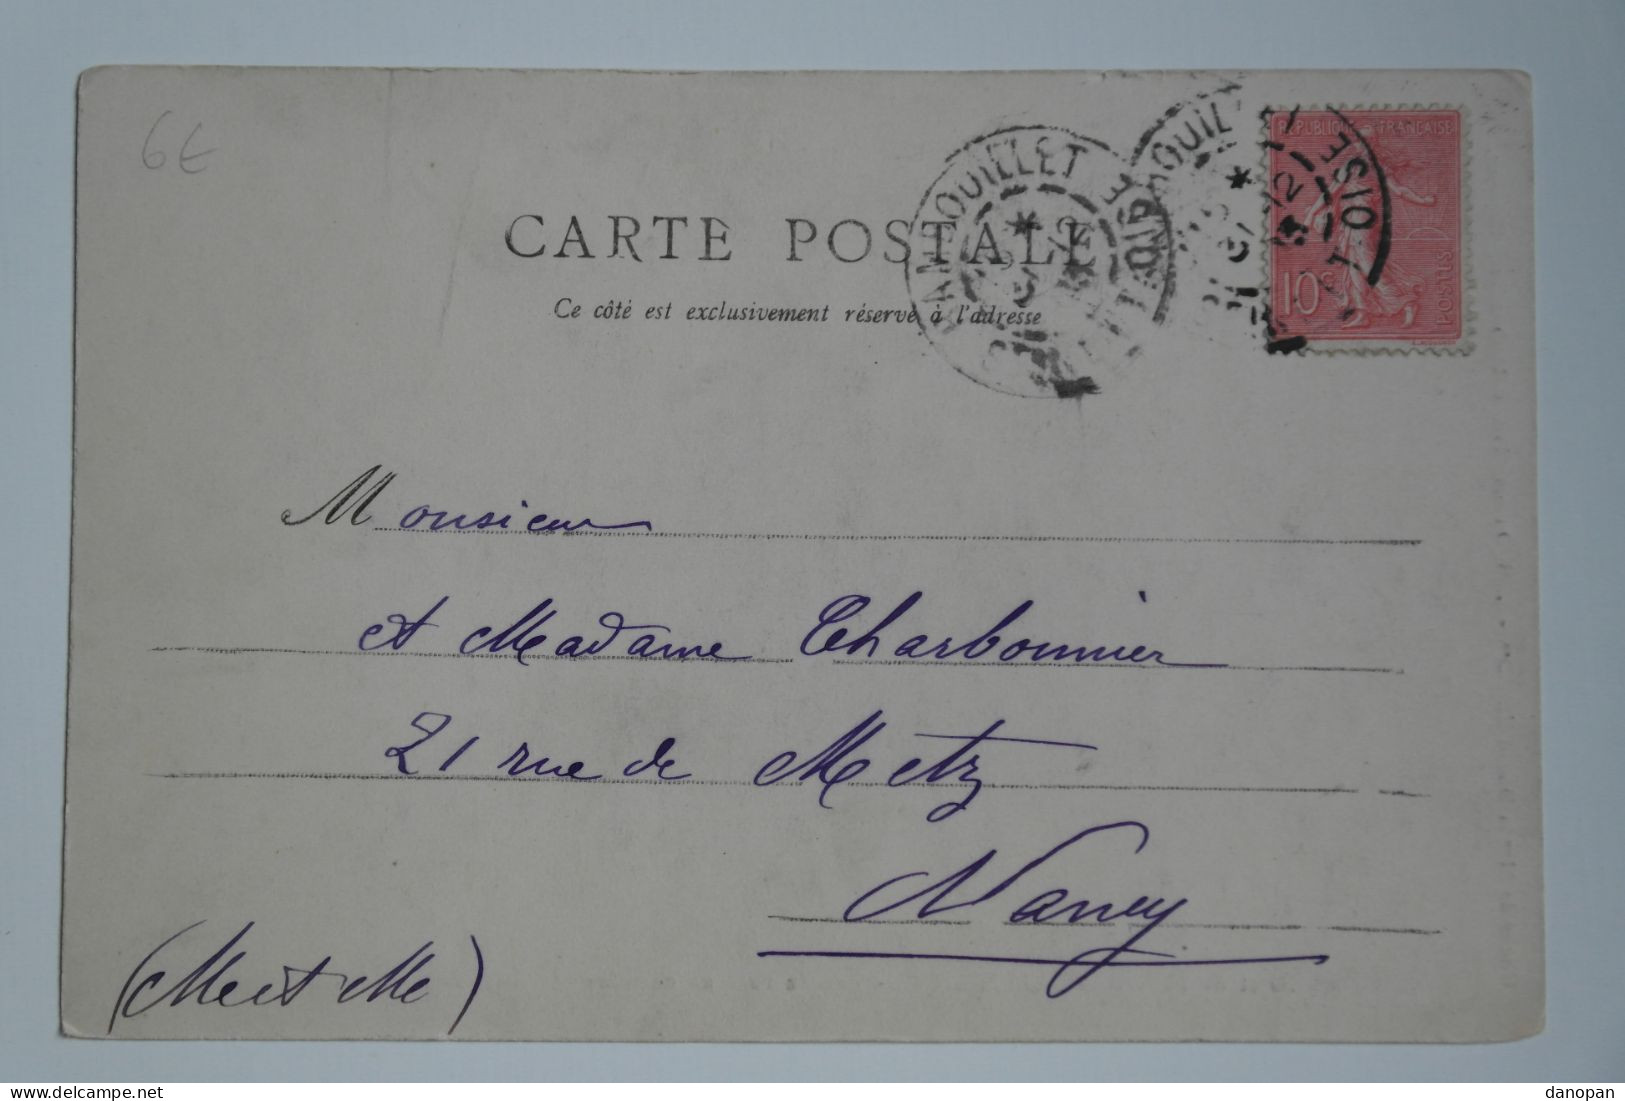 6€
RAMBOUILLET
RÉPUBLIQUE FRANÇAISE
10c
POSTES
CARTE POSTALE
Ce côté est exclusivement réservé à l'adresse
Monsieur
et Madame Charbonnier
21 rue de Metz
Nancy
(Meurthe et Me)
delcampe.net
danopan